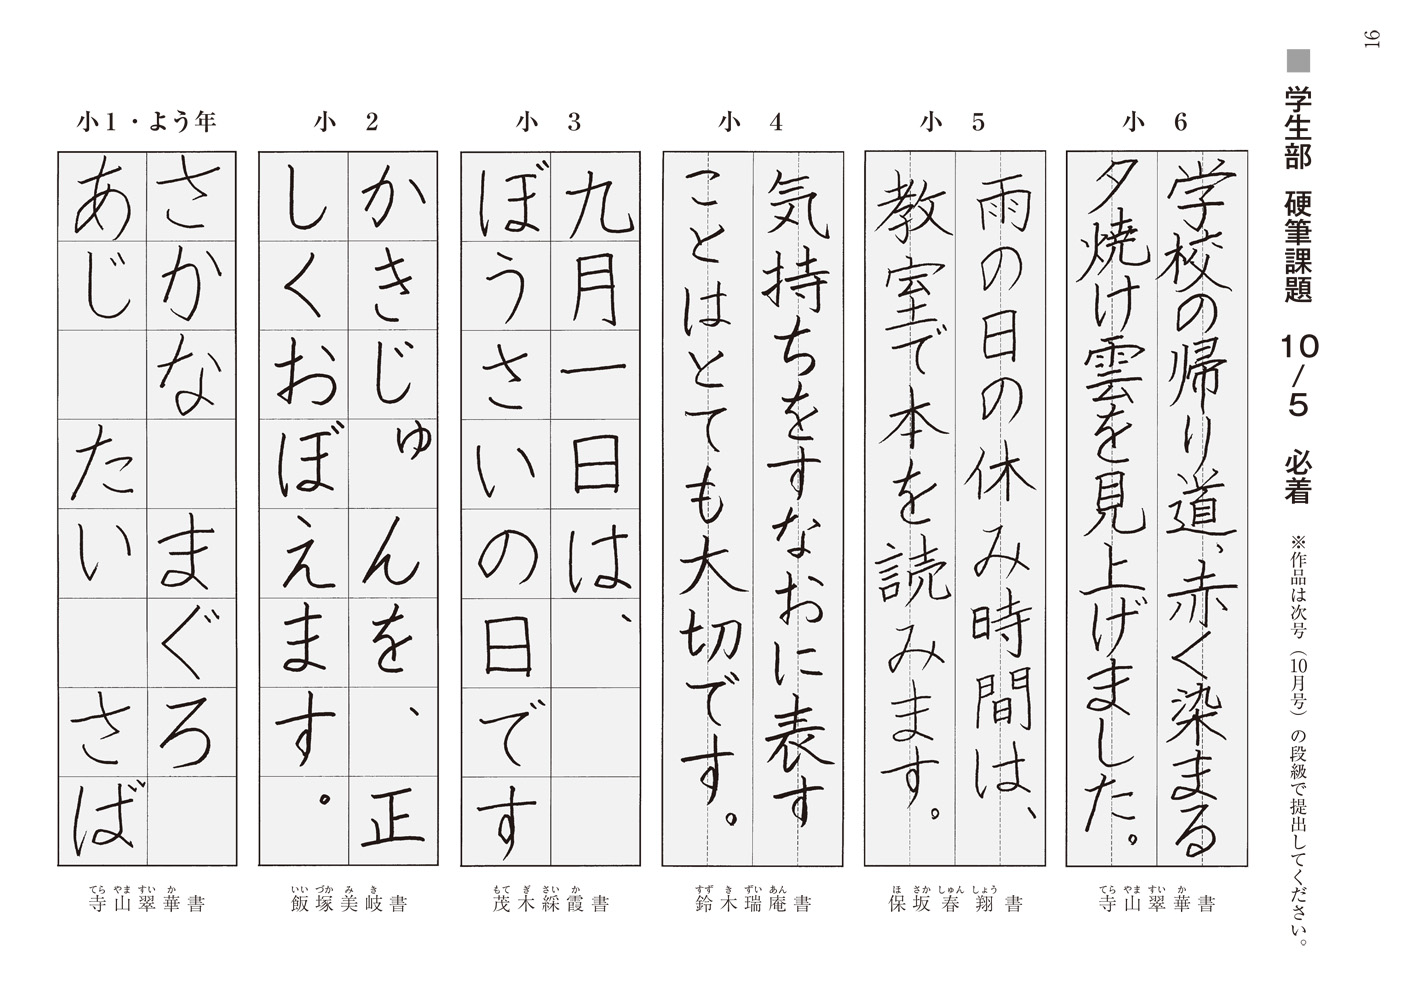 16
■ 学生部 硬筆課題 10/5 必着 ※作品は次号（10月号）の段級で提出してください。
小6
学校の帰り道、赤く染まる
夕焼け雲を見上げました。
寺山翠華書
てらやますいか
小5
雨の日の休み時間は、
教室で本を読みます。
保坂春翔書
ほさかしゅんしょう
小4
気持ちをすなおに表す
ことはとても大切です。
鈴木瑞庵書
すずきずいあん
小3
九月一日は、
ぼうさいの日です
茂木綵霞書
もてぎさいか
小2
かきじゅんを、正
しくおぼえます。
飯塚美岐書
いいづかみき
小1・よう年
さかな まぐろ
あじ たい さば
寺山翠華書
てらやますいか